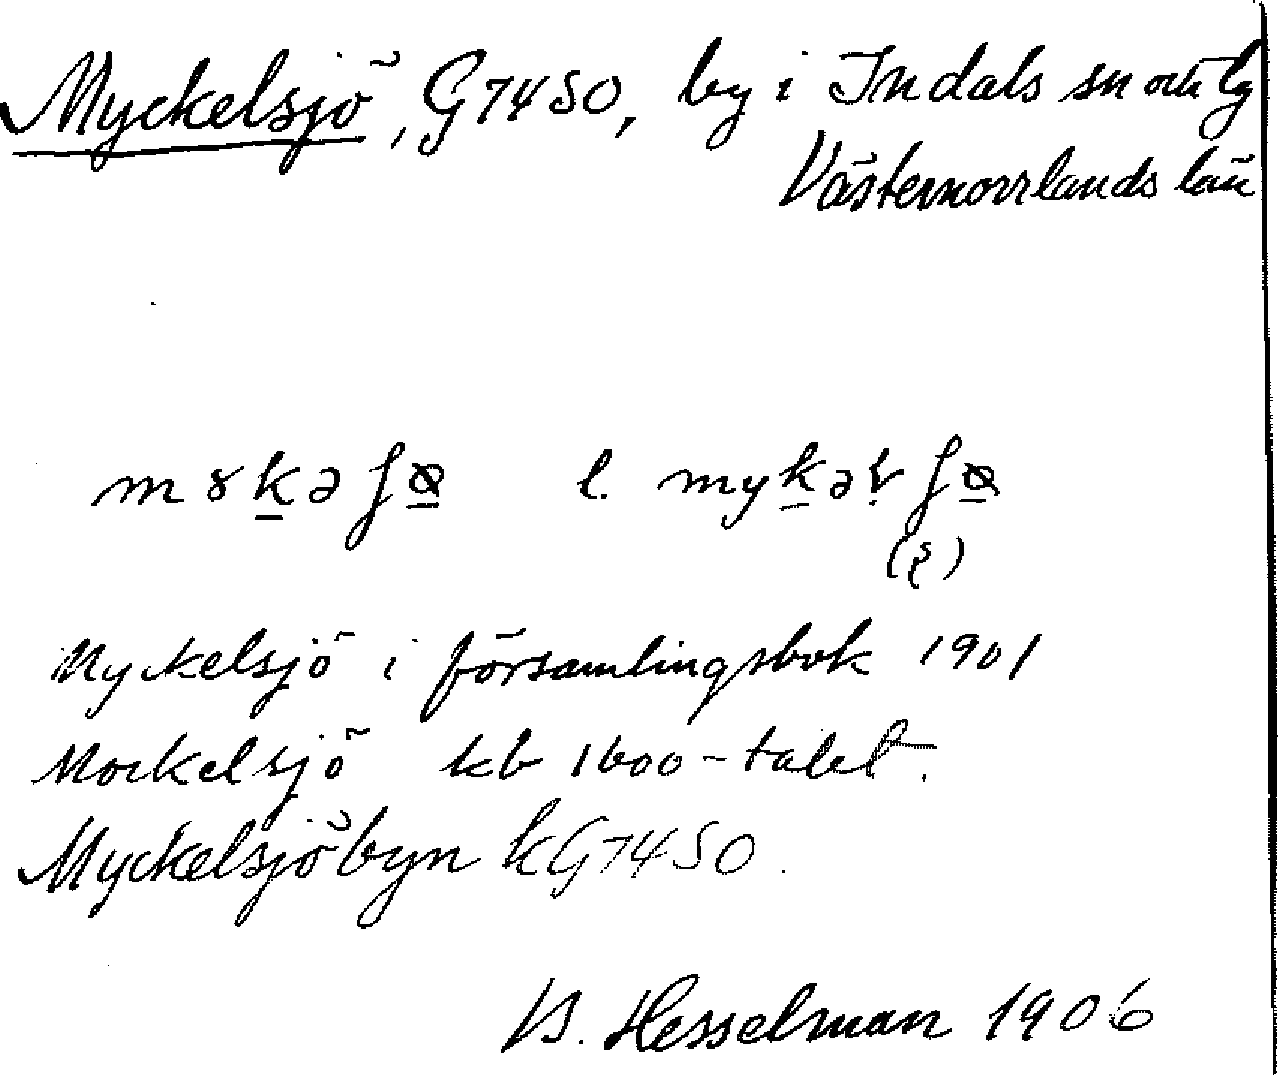 Myckelsjö, G74SO, by i Indals sn och lg
Västernorrlands län
l.
Myckelsjö i församlingsbok 1901
Mockelsjö kb 1600-talet.
Myckelsjöbyn kG74SO.
B. Hesselman 1906